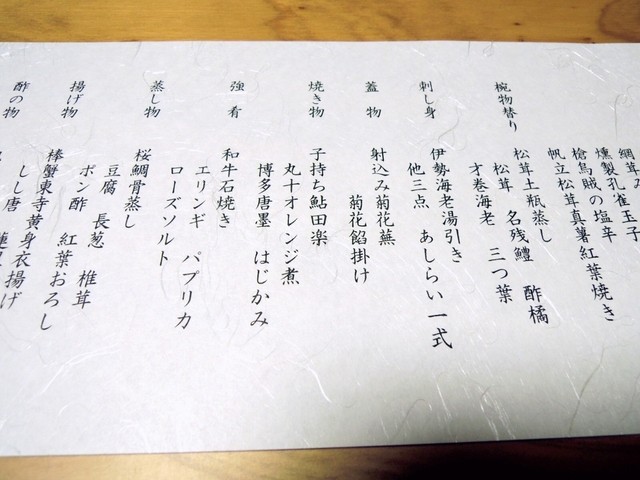 網茸 孔雀玉子
燻製孔雀玉子
槍烏賊の塩辛
帆立松茸真薯紅葉焼き
椀物替り
松茸土瓶蒸し
松茸 名残鱧 酢橘
才巻海老 三つ葉
刺し身
伊勢海老湯引き
他三点 あしらい一式
蓋物
射込み菊花蕪
菊花餡掛け
焼き物
子持ち鮎田楽
丸十オレンジ煮
博多唐墨 はじかみ
強肴
和牛石焼き
エリンギ パプリカ
ローズソルト
蒸し物
桜鯛骨蒸し
豆腐 長葱 椎茸
ポン酢 紅葉おろし
揚げ物
棒蟹東寺黄身衣揚げ
しし唐
酢の物